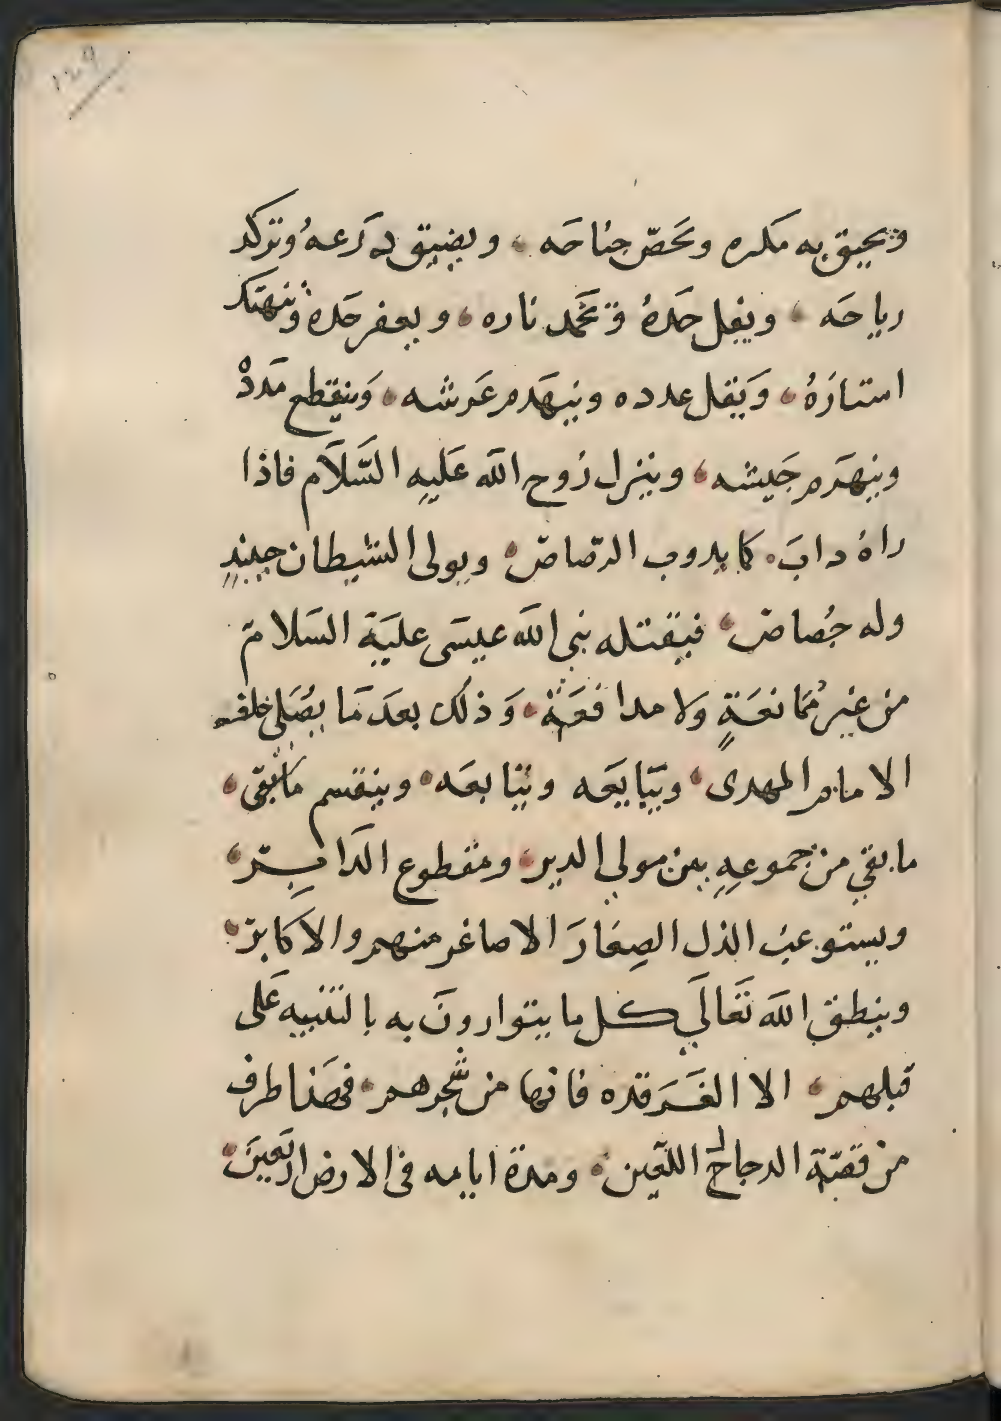 ١٤٩
ويحيق به مكره ويحص جناحه ، ويضيق ذرعه وتركد
رياحه ، ويفل حَدهُ وتخمد ناره ، ويعفر خده وينهتك
استارَهُ ، وَيَقل عدده وينهَدم عَرشه ، وَينقطع مَددهْ
وينهَزم جَيشه ، وينزل رُوح الله عَليهِ السَّلَام فاذا
راهُ دابَ . كما يدوب الرّصاصْ ، ويولى الشيطان حينيدٍ
وله حُصاص ، فيقتله نبى الله عيسَى عليَهِ السَلام
من غير مُمَانعَةٍ وَلا مدافعَة ، وَذلك بعدَ مَا يصَلى خلفه
الامام المهدى ، ويبَايعَه ويتابعَه ، وينقسم مابقى ،
مابقي من جموعهِ بين مولي الدبر ، ومقطوع الدابر ،
ويستوعب الذل الصِغارَ الاصاغر منهم والاكابر ،
وينطق الله تَعَالَي كل ما يتوارونَ به بالتنبيه عَلى
قبلهم ، الا الغَرقده فانها من شجرهم ، فهَذا طرف
من قصّة الدجاج اللعين ، ومدة ايامه فى الارض اربَعينَ ،